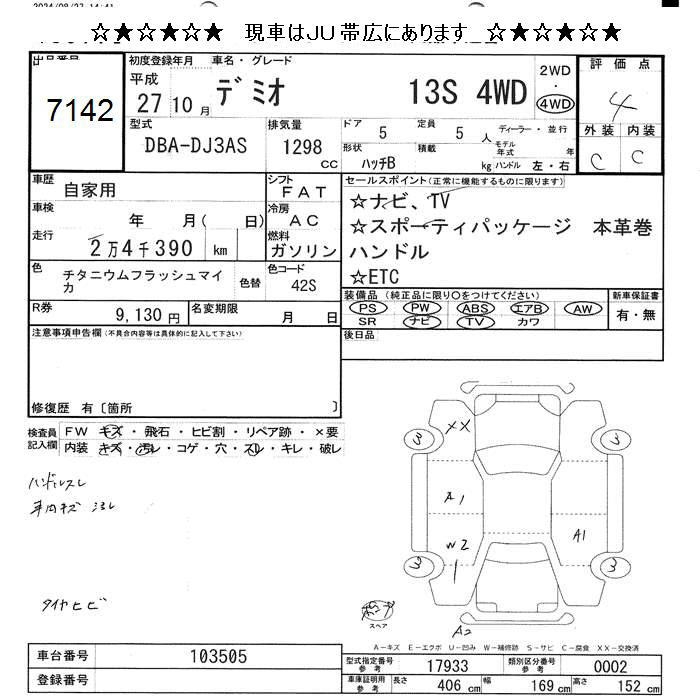 2024/08/27 14:41
☆★☆★☆★ 現車はJU帯広にあります ☆★☆★☆★
出品番号
7142
初度登録年月 車名・グレード
平成 27 10 月 デミオ 13S 4WD
2WD ・ 4WD
評価点
4
外装 内装
C C
型式 DBA-DJ3AS
排気量 1298 cc
ドア 5 定員 5 人 ディーラー・並行
形状 ハッチB 積載 kg モデル年式 年 ハンドル 左・右
車歴 自家用
シフト FAT
車検 年 月( 日)
冷房 AC
走行 2万4千390 km
燃料 ガソリン
色 チタニウムフラッシュマイカ 色替
色コード 42S
R券 9,130 円 名変期限 月 日
セールスポイント(正常に機能するものに限ります)
☆ナビ、TV
☆スポーティパッケージ 本革巻
ハンドル
☆ETC
装備品(純正品に限り○をつけてください)
PS PW ABS エアB AW
SR ナビ TV カワ
新車保証書
有・無
後日品
注意事項申告欄(不具合内容等は具体的に記入して下さい)
修復歴 有〔箇所 〕
検査員記入欄
FW キズ・飛石・ヒビ割・リペア跡・×要
内装 キズ・汚レ・コゲ・穴・スレ・キレ・破レ
ハンドルスレ
車内キズ ヨゴレ
タイヤヒビ
XX
3 3
A1
W2
A1
3 3
A2
スペア
A-キズ E-エクボ U-凹み W-補修跡 S-サビ C-腐食 XX-交換済
車台番号 103505
登録番号
型式指定番号参考 17933 類別区分番号参考 0002
車庫証明用参考 長さ 406 cm 幅 169 cm 高さ 152 cm